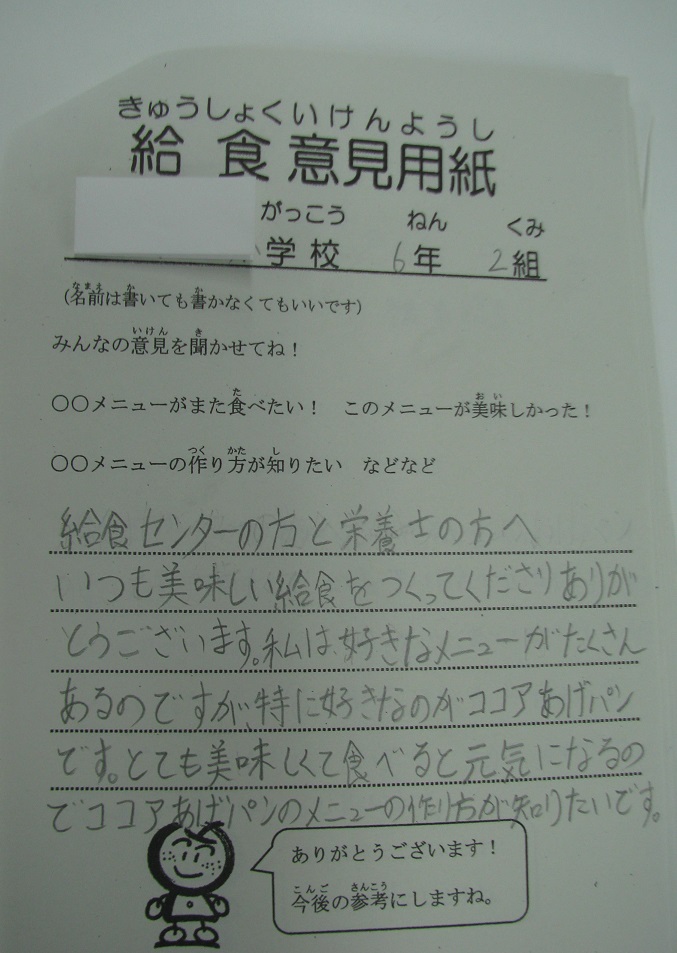 きゅうしょくいけんようし
給食意見用紙
がっこう ねん くみ
学校 6年 2組
なまえ か か
(名前は書いても書かなくてもいいです)
いけん き
みんなの意見を聞かせてね!
た おい
〇〇メニューがまた食べたい! このメニューが美味しかった!
つく かた し
〇〇メニューの作り方が知りたい などなど
給食センターの方と栄養士の方へ
いつも美味しい給食をつくってくださりありが
とうございます。私は好きなメニューがたくさん
あるのですが、特に好きなのがココアあげパン
です。とても美味しくて食べると元気になるの
でココアあげパンのメニューの作り方が知りたいです。
ありがとうございます!
こんご さんこう
今後の参考にしますね。